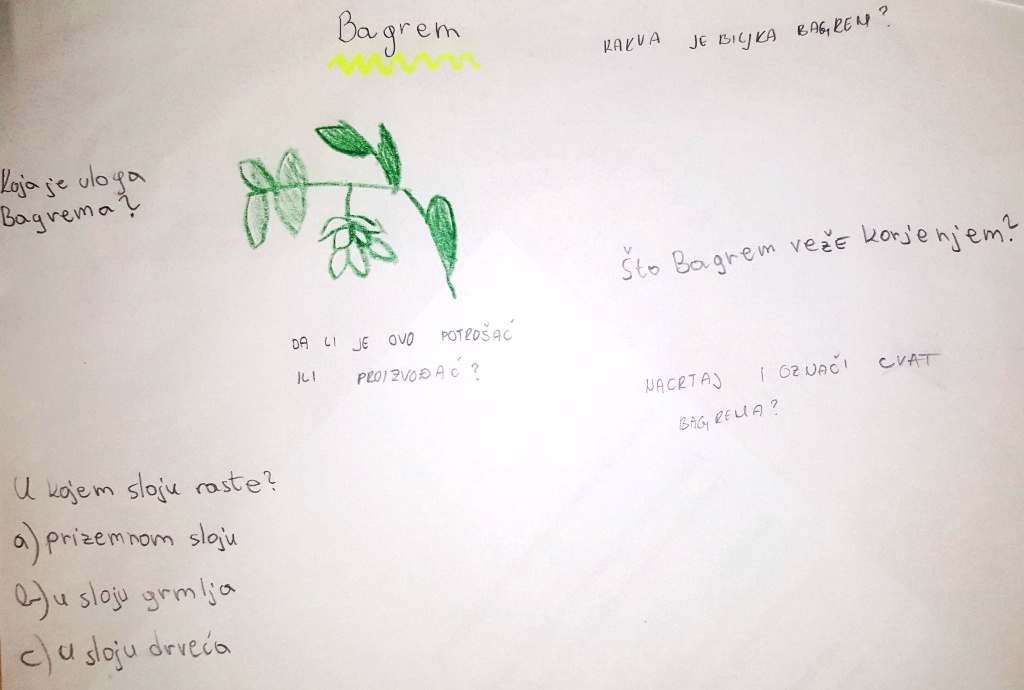 Bagrem
KAKVA JE BILJKA BAGREM?
Koja je uloga
Bagrema?
Što Bagrem vežE korjenjem?
DA LI JE OVO POTROŠAĆ
ILI PROIZVOĐAĆ?
NACRTAJ I OZNAČI CVAT
BAGREMA?
U kojem sloju raste?
a) prizemnom sloju
b) u sloju grmlja
c) u sloju drveća